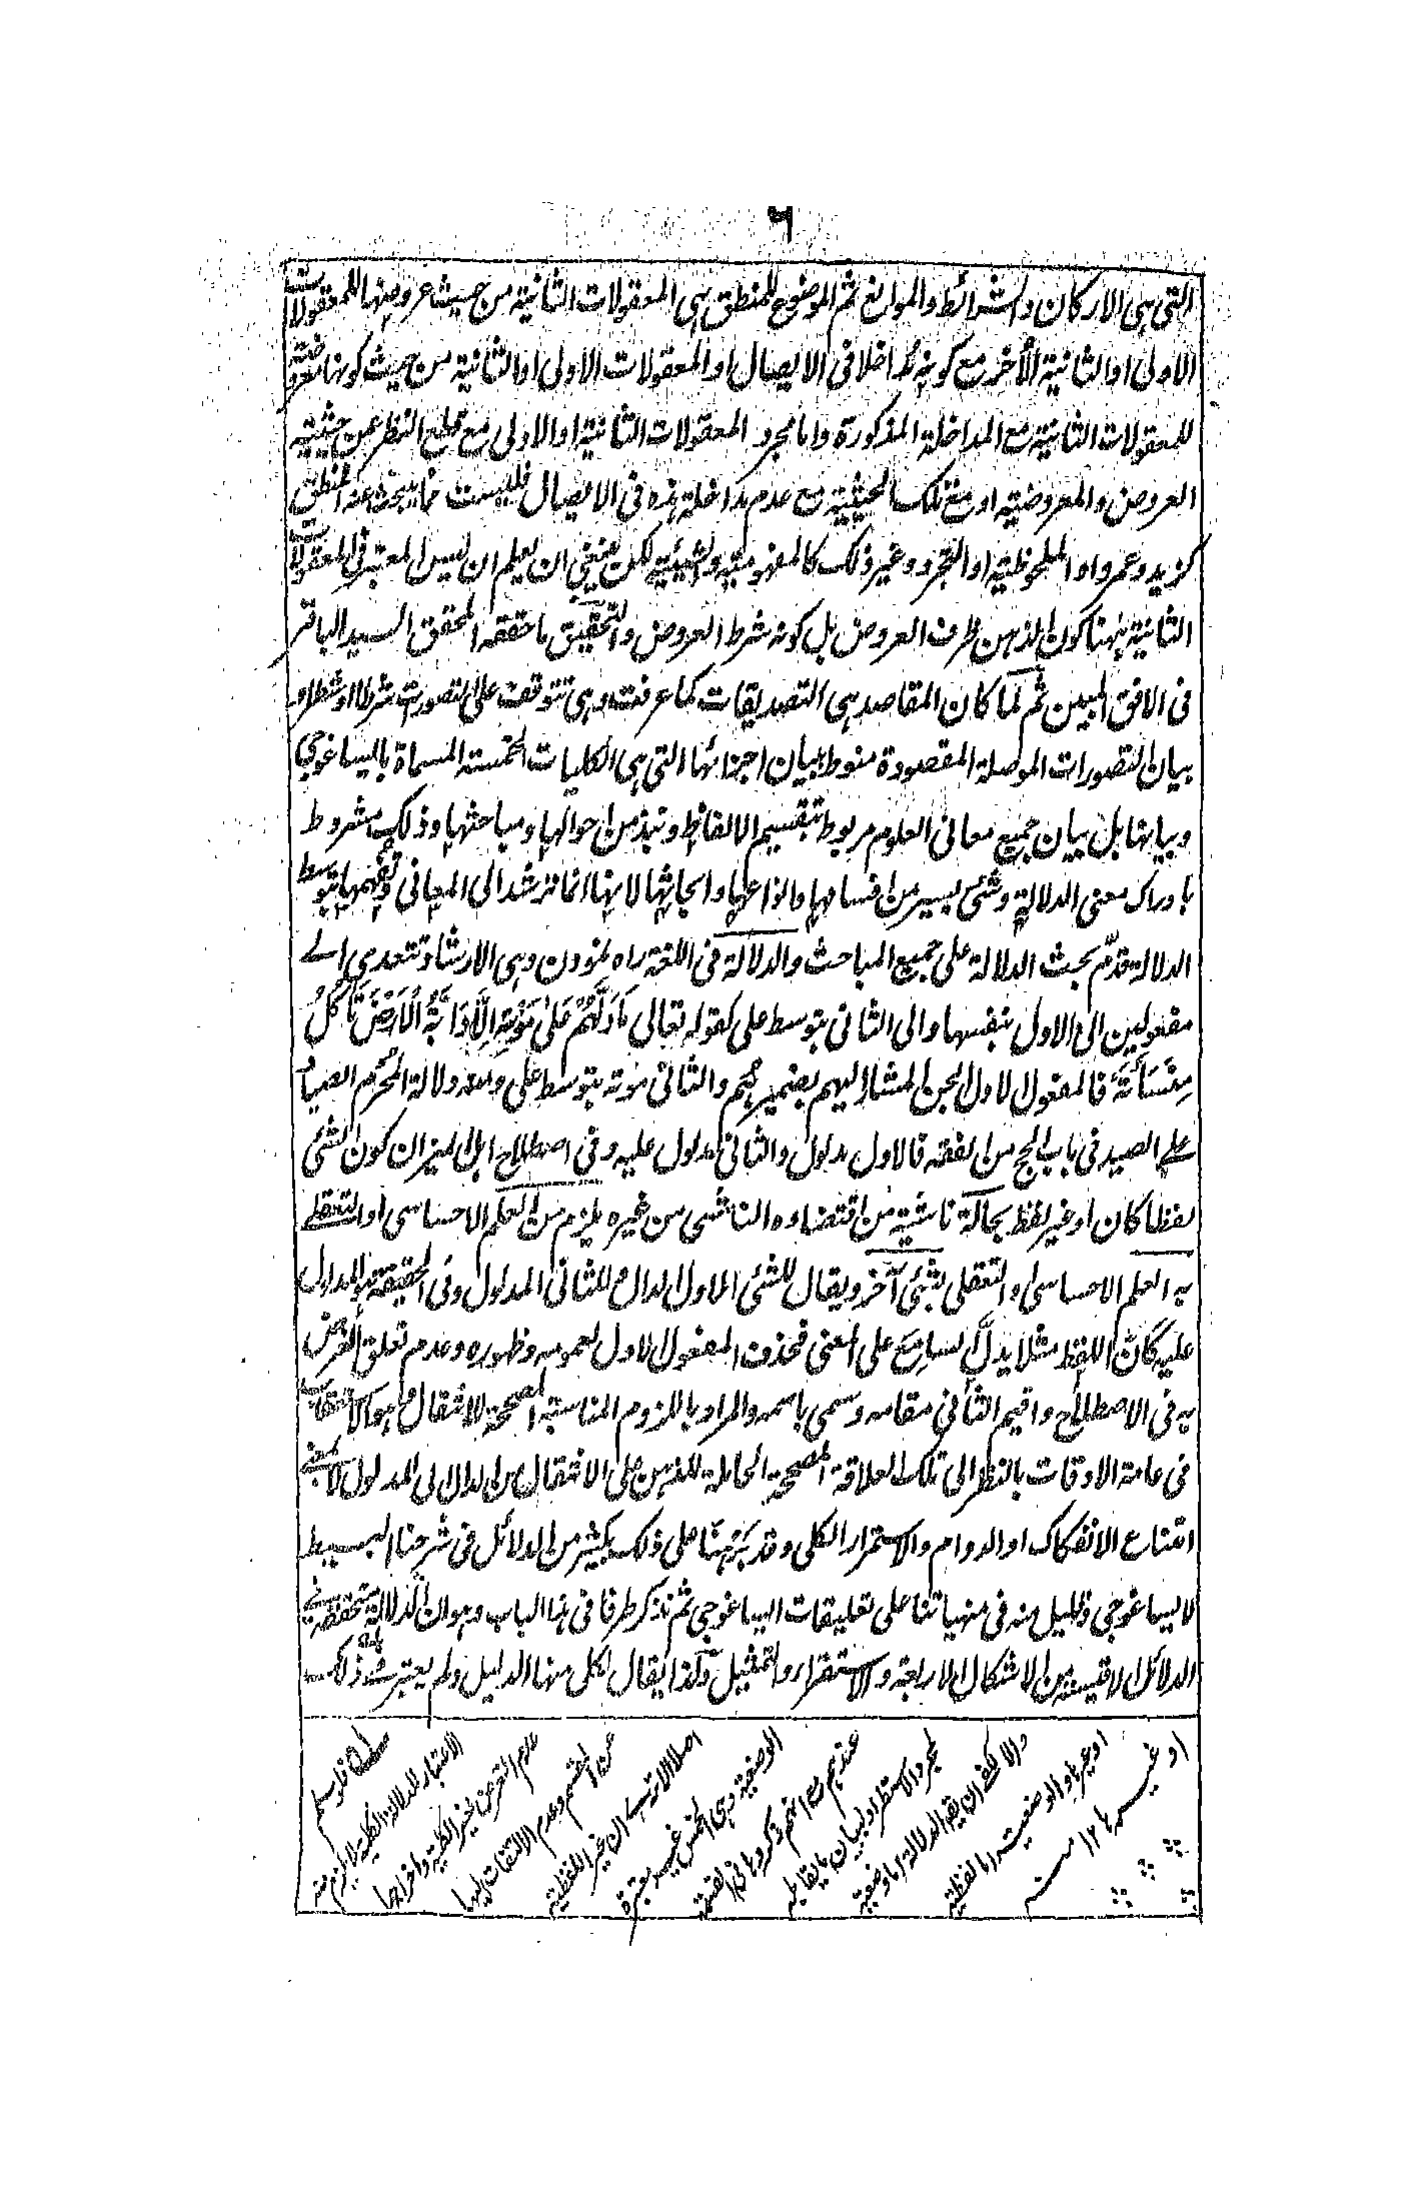 ٦
التي هي الاركان والشرائط والموانع ثم الموضوع للمنطق هي المعقولات الثانية من حيث عروضها للمعقولات
الاولى او الثانية الأخر مع كونه مداخلا في الايصال او المعقولات الاولى او الثانية من حيث كونها معروضة
للمعقولات الثانية مع المداخلة المذكورة واما مجرد المعقولات الثانية او الاولى مع قطع النظر عن حيثية
العروض والمعروضية او مع تلك الحيثية مع عدم مداخلة هذه في الايصال فليست مما يبحث عنه المنطق
كزيد وعمرو او الملحوظية او التجرد وغير ذلك كالمفهومية والشيئية لكن ينبغي ان يعلم ان ليس المعتبر في المعقولات
الثانية ههنا كون الذهن ظرف العروض بل كونه شرط العروض والتحقيق ما حققه المحقق السيد الباقر
في الافق المبين ثم لما كان المقاصد هي التصديقات كما عرفت وهي تتوقف على التصورات شرطا او شطرا و
بيان التصورات الموصلة المقصودة منوط ببيان اجزائها التي هي الكليات الخمسة المسماة بالايساغوجي
وبيانها بل بيان جميع معاني العلوم مربوط بتقسيم الالفاظ ونبذ من احوالها ومباحثها وذلك مشروط
بادراك معنى الدلالة وشئ يسير من اقسامها وانواعها وابحاثها لانها انما ترشد الى المعاني وتفهمها بتوسط
الدلالة قدم بحث الدلالة على جميع المباحث والدلالة في اللغة راه نمودن وهي الارشاد وتتعدى الے
مفعولين الى الاول بنفسها والى الثاني بتوسط على كقوله تعالى مَا دَلَّهُمْ عَلَى مَوْتِهٖ اِلَّا دَابَّةُ الْاَرْضِ تَأْكُلُ
مِنْسَأَتَهٗ فالمفعول الاول الجن المشار اليهم بضمير هم والثاني موته بتوسط على ومنه دلالة المحرم الصياد
علے الصيد في باب الحج من الفقه فالاول مدلول والثاني مدلول عليه وفي اصطلاح اهل الميزان كون الشئ
لفظا كان او غير لفظ بحالة ناشئية من اقتضاءه الناشئ من غيره يلزم من العلم الاحساسي او التعقلے
به العلم الاحساسي والتعقلي بشئ آخر ويقال للشئ الاول الدال للثاني المدلول وفي الحقيقة هو المدلول
عليه كأن اللفظ مثلا يدل السامع على المعنى فحذف المفعول الاول لعمومه وظهوره وعدم تعلق الغرض
به في الاصطلاح واقيم الثاني مقامه وسمي باسمه والمراد باللزوم المناسبة المصححة للانتقال
في عامة الاوقات بالنظر الى تلك العلاقة المصححة الحاملة للذهن على الانتقال من الدال الى المدلول لا بمعنى
امتناع الانفكاك او الدوام والاستمرار الكلي وقد برهنا على ذلك بكثير من الدلائل في شرحنا البسيط
لايساغوجي وقليل منه في منهياتنا على تعليقات ايساغوجي ثم نذكر طرفا في هذا الباب وهو ان الدلالة متحققة في
الدلائل الاقيسة من الاشكال الاربعة والاستقراء والتمثيل ولذا يقال لكل منها الدليل ولم يعتبر ذلك
او غيرها ١٢ منه
او غيرها والوضعية اما لفظية
والا ان يقال الدلالة اما وضعية
لمجرد الاستطراد لبيان ما يقابله
عندهم انهم ذكروها في القسمة
الوضعية وهي الخمس غير معتبرة
اصلا الا ترى ان غير اللفظية
عن القسم وعدم الالتفات اليها
عدم التعرض لغير الكلية واخراجها
الاعتبار للدلالة الكلية لا يلزم منه